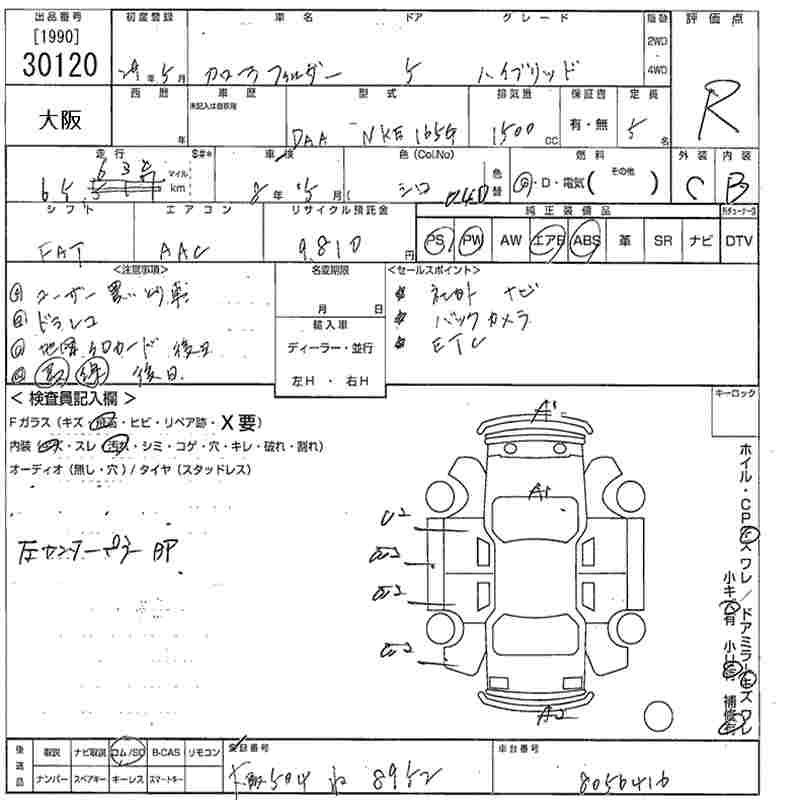 出品番号 初度登録 車名 ドア グレード 駆動 評価点
[1990]
30120 29年5月 カローラフィルダー 5 ハイブリッド 2WD・4WD R
大阪 西暦 年 車歴 未記入は自家用 型式 排気量 保証書 定員
DAA NKE165G 1500cc 有・無 5名
走行 $#* 車検 色(Col.No) 色替 燃料 外装 内装
マイル km 8年5月 シロ 040 G・D・電気( その他 ) C B
シフト エアコン リサイクル預託金 純正装備品
FAT AAC 9.810円 PS PW AW エアB ABS 革 SR ナビ DTV
<注意事項> 名変期限 <セールスポイント>
ユーザー買い取り車 ネオト ナビ
ドラレコ 月 日 バックカメラ
地図SDカード 後日 輸入車 ETC
後日 ディーラー・並行
左H・右H
<検査員記入欄> キーロック
Fガラス(キズ・飛石・ヒビ・リペア跡・X要)
内装(キズ・スレ・汚れ・シミ・コゲ・穴・キレ・破れ・割れ)
オーディオ(無し・穴)/タイヤ(スタッドレス)
左センターピラーBP
A1
A1
U2
A2
ホイル・CPキズワレ/ドアミラーキズワレ
小キズ有 小U有 補修有
後送品 取説 ナビ取説 ロム/SD B-CAS リモコン 登録番号 車台番号
ナンバー スペアキー キーレス スマートキー 大阪504 8952 8056416